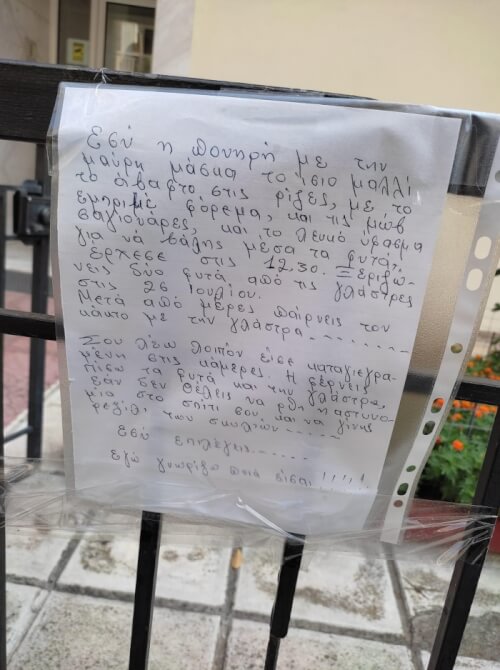 Εσύ η πονηρή με την
μαύρη μάσκα το ίσιο μαλλί
το άβαφτο στις ρίζες, με το
εμπριμέ φόρεμα, και τις μώβ
σαγιονάρες, και το λευκό ύφασμα
για νά βάλης μέσα τα φυτά,
έρχεσε στις 12.30. Ξεριζώ-
νεις δύο φυτά από τις γλάστρες
στις 26 Ιουλίου.
Μετά από μέρες παίρνεις τον
κάκτο με την γλάστρα........
Σου λέω λοιπόν είσε καταγεγρα-
μένη στις κάμερες. Η φέρνεις
πίσω τα φυτά και την γλάστρα,
εάν δεν θέλεις να ρθη η αστυνο-
μία στο σπίτι σου και να γίνης
ρεζίλι των σκυλιών.....
Εσύ επιλέγεις.....
Εγώ γνωρίζω ποιά είσαι!!!!!